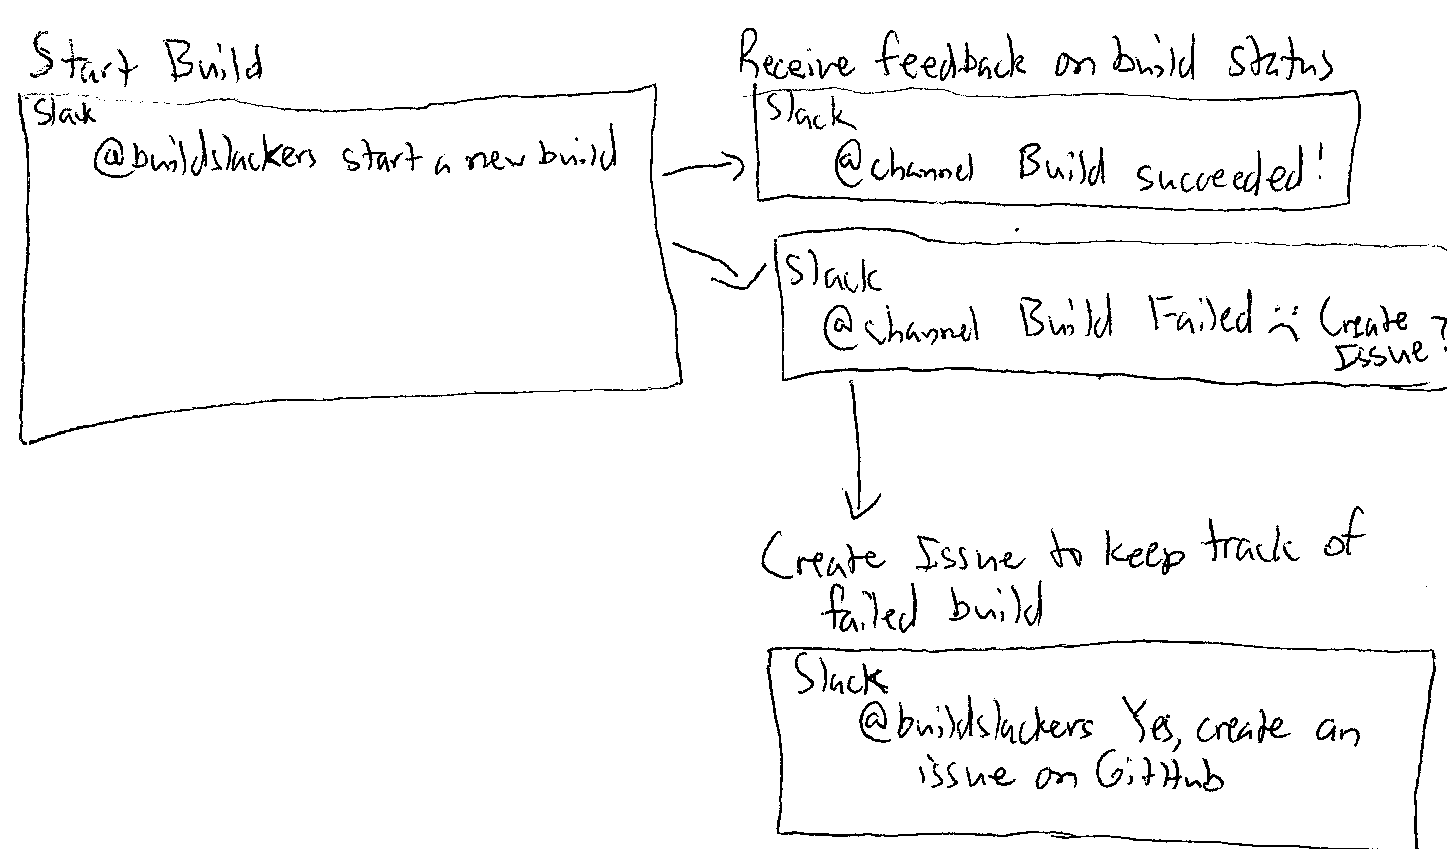 Start Build
Slack
@buildslackers start a new build
Receive feedback on build status
Slack
@channel Build succeeded!
Slack
@channel Build Failed :( Create
Issue?
Create Issue to keep track of
failed build
Slack
@buildslackers Yes, create an
issue on GitHub